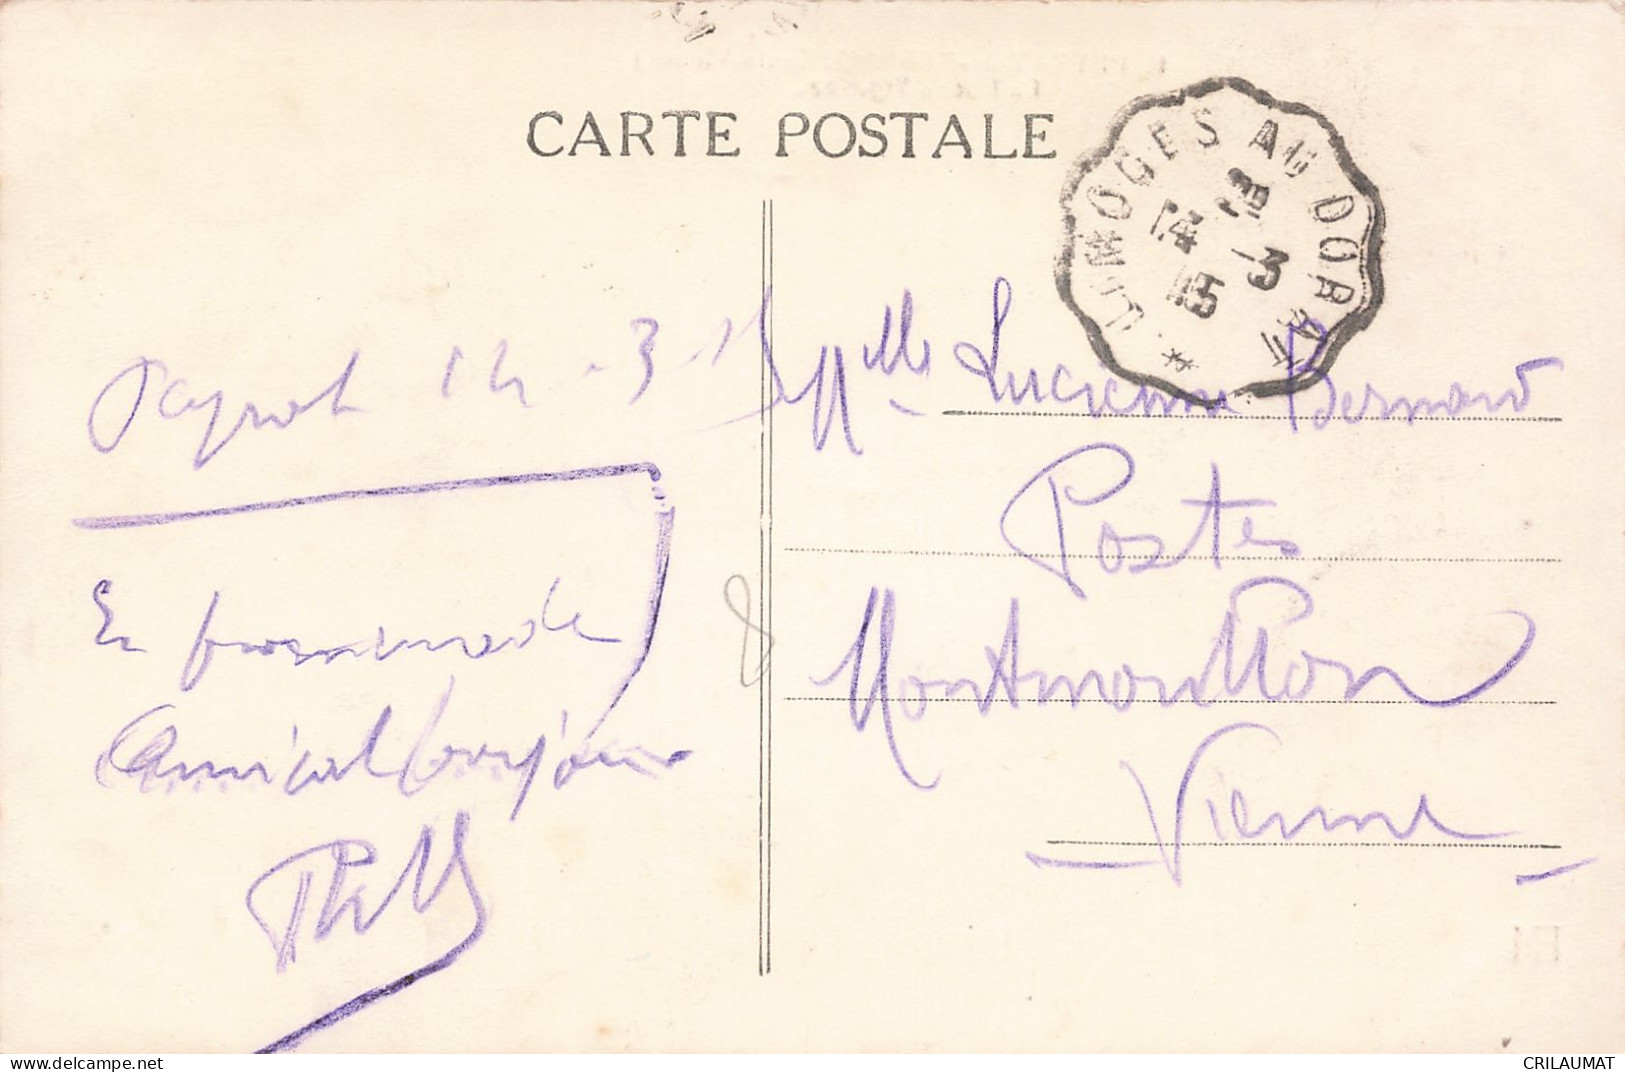 CARTE POSTALE
LIMOGES AU DORAT
14 -3
15
*
14-3-15
En promenade
Amical toujours
Mlle Lucienne Bernard
Postes
Montmorillon
Vienne
www.delcampe.net
CRILAUMAT